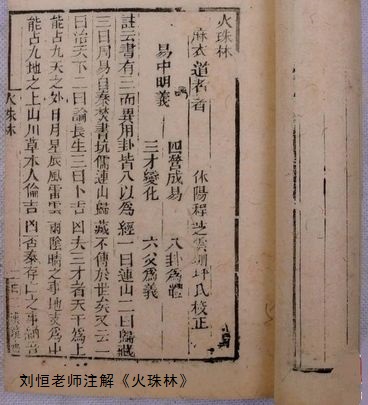 火珠林
麻衣道者著 休陽程芝雲瑚坪氏校正
四營成易 八卦為體
易中明義
三才變化 六爻為義
註云書有三而異用卦皆八以為經一曰連山二曰歸藏
三曰周易自秦焚書坑儒連山歸藏不傳於世矣又云一
曰治天下二曰論長生三曰卜吉凶夫三才者天為上
能占九天之外日月星辰風雷雲雨陰晴之事地為中
能占九地之上山川草木人倫吉凶否泰存亡之事
火珠林
刘恒老师注解《火珠林》